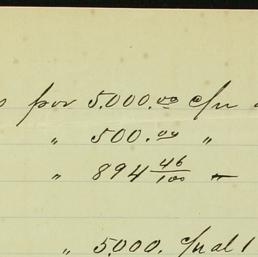 por 5.000.00 c/u
" 500.00 "
" 894 46/100 -
" 5.000. c/u al 1